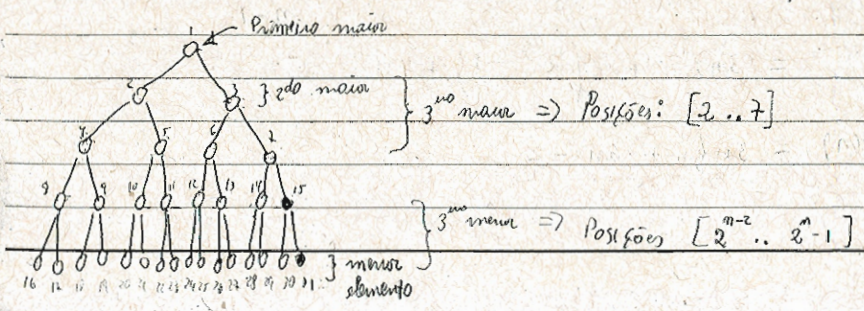 1 Primeiro maior
2 3 } 2do maior
} 3uo maior => Posições: [2 .. 7]
4 5 6 7
8 9 10 11 12 13 14 15
} 3uo menor => Posições [2^n-2 .. 2^n-1]
} menor
16 17 18 19 20 21 22 23 24 25 26 27 28 29 30 31
elemento